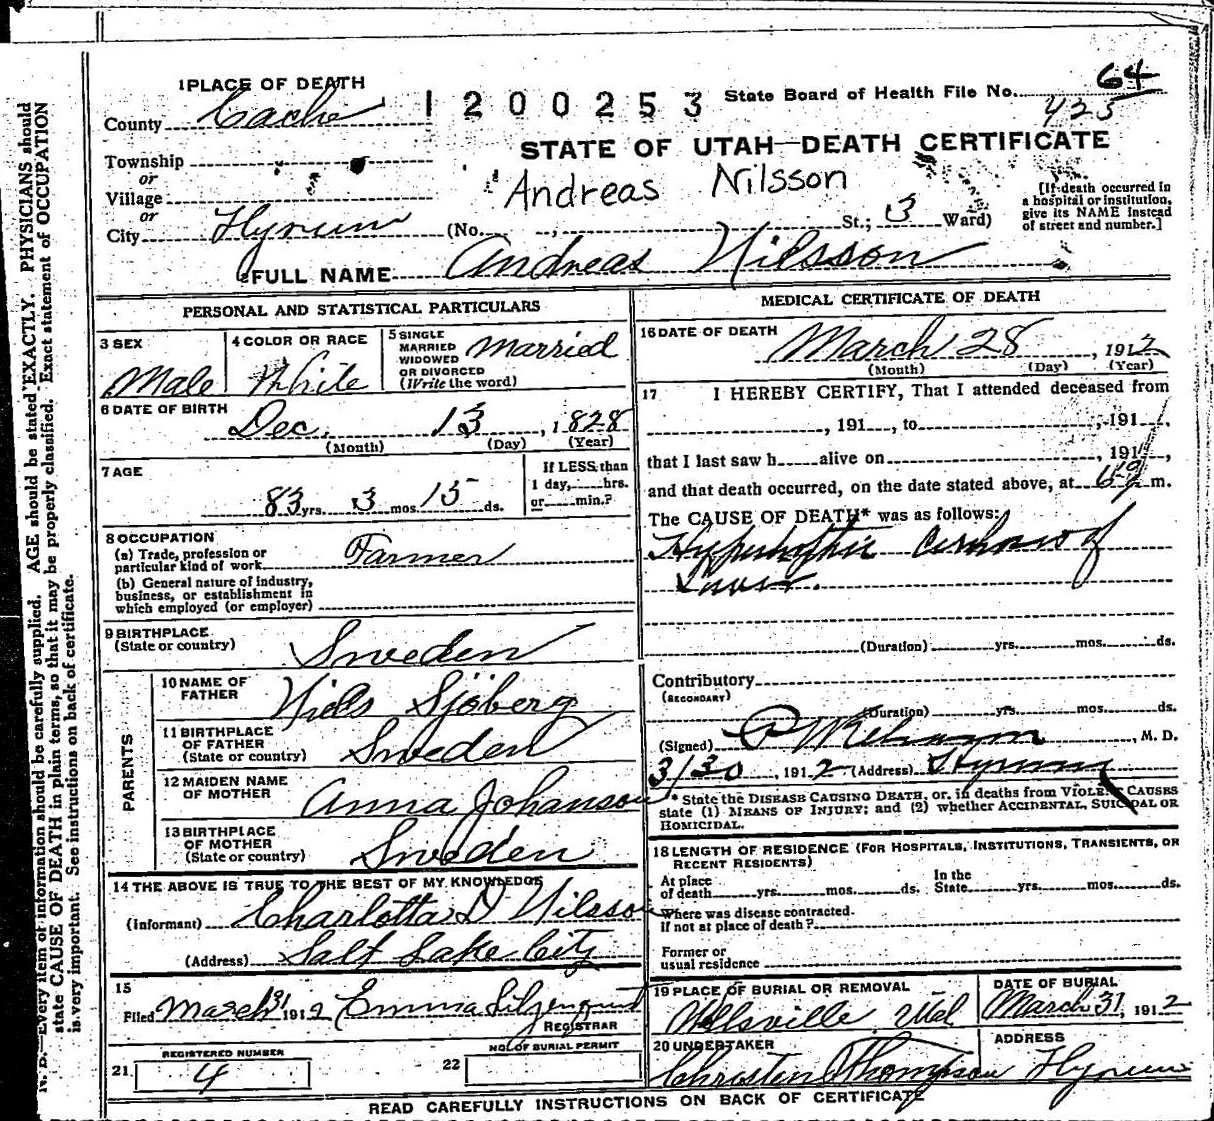 N. B.—Every item of information should be carefully supplied. AGE should be stated EXACTLY. PHYSICIANS should
state CAUSE OF DEATH in plain terms, so that it may be properly classified. Exact statement of OCCUPATION
is very important. See instructions on back of certificate.
1 PLACE OF DEATH
County Cache
1200253
State Board of Health File No. 64
425
STATE OF UTAH—DEATH CERTIFICATE
Township
or
Village
or
City Hyrum
Andreas Nilsson
(No. , St.; 3 Ward)
[If death occurred in
a hospital or institution,
give its NAME instead
of street and number.]
2 FULL NAME Andreas Nilsson
PERSONAL AND STATISTICAL PARTICULARS
3 SEX
Male
4 COLOR OR RACE
White
5 SINGLE
MARRIED
WIDOWED
OR DIVORCED
(Write the word)
Married
6 DATE OF BIRTH
Dec. 13, 1828
(Month) (Day) (Year)
7 AGE
83 yrs. 3 mos. 15 ds.
If LESS than
1 day, hrs.
or min.?
8 OCCUPATION
(a) Trade, profession or
particular kind of work Farmer
(b) General nature of industry,
business, or establishment in
which employed (or employer)
9 BIRTHPLACE
(State or country)
Sweden
PARENTS
10 NAME OF
FATHER
Niels Sjöberg
11 BIRTHPLACE
OF FATHER
(State or country)
Sweden
12 MAIDEN NAME
OF MOTHER
Anna Johanson
13 BIRTHPLACE
OF MOTHER
(State or country)
Sweden
14 THE ABOVE IS TRUE TO THE BEST OF MY KNOWLEDGE
(Informant) Charlotta D Nilsson
(Address) Salt Lake City
15
Filed March 31 1912 Emma
REGISTRAR
REGISTERED NUMBER
21. 4
NO. OF BURIAL PERMIT
22
MEDICAL CERTIFICATE OF DEATH
16 DATE OF DEATH
March 28, 1912
(Month) (Day) (Year)
17 I HEREBY CERTIFY, That I attended deceased from
, 191 , to , 191 ,
that I last saw h alive on , 191 ,
and that death occurred, on the date stated above, at m.
The CAUSE OF DEATH* was as follows:
Hypertrophic Cirrhosis of
Liver.
(Duration) yrs. mos. ds.
Contributory
(SECONDARY)
(Duration) yrs. mos. ds.
(Signed) , M. D.
3/30, 1912 (Address) Hyrum
* State the DISEASE CAUSING DEATH, or, in deaths from VIOLENT CAUSES
state (1) MEANS OF INJURY; and (2) whether ACCIDENTAL, SUICIDAL OR
HOMICIDAL.
18 LENGTH OF RESIDENCE (FOR HOSPITALS, INSTITUTIONS, TRANSIENTS, OR
RECENT RESIDENTS)
At place
of death yrs. mos. ds.
In the
State yrs. mos. ds.
Where was disease contracted.
if not at place of death?
Former or
usual residence
19 PLACE OF BURIAL OR REMOVAL
Wellsville Utah
DATE OF BURIAL
March 31, 1912
20 UNDERTAKER
Christen Thompson
ADDRESS
Hyrum
READ CAREFULLY INSTRUCTIONS ON BACK OF CERTIFICATE